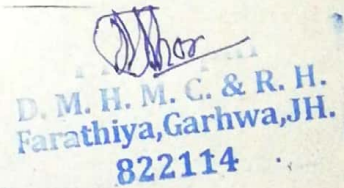 D. M. H. M. C. & R. H.
Farathiya,Garhwa,JH.
822114